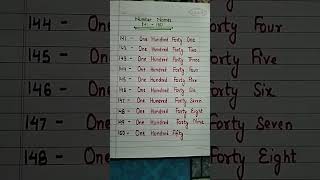 Number Names
141 - 150
141 - One Hundred Forty One
142 - One Hundred Forty Two
143 - One Hundred Forty Three
144 - One Hundred Forty Four
145 - One Hundred Forty Five
146 - One Hundred Forty Six
147 - One Hundred Forty Seven
148 - One Hundred Forty Eight
149 - One Hundred Forty Nine
150 - One Hundred Fifty
144 -
145 -
146 -
147 -
148 -
Forty Four
Forty Five
Forty Six
Forty Seven
Forty Eight